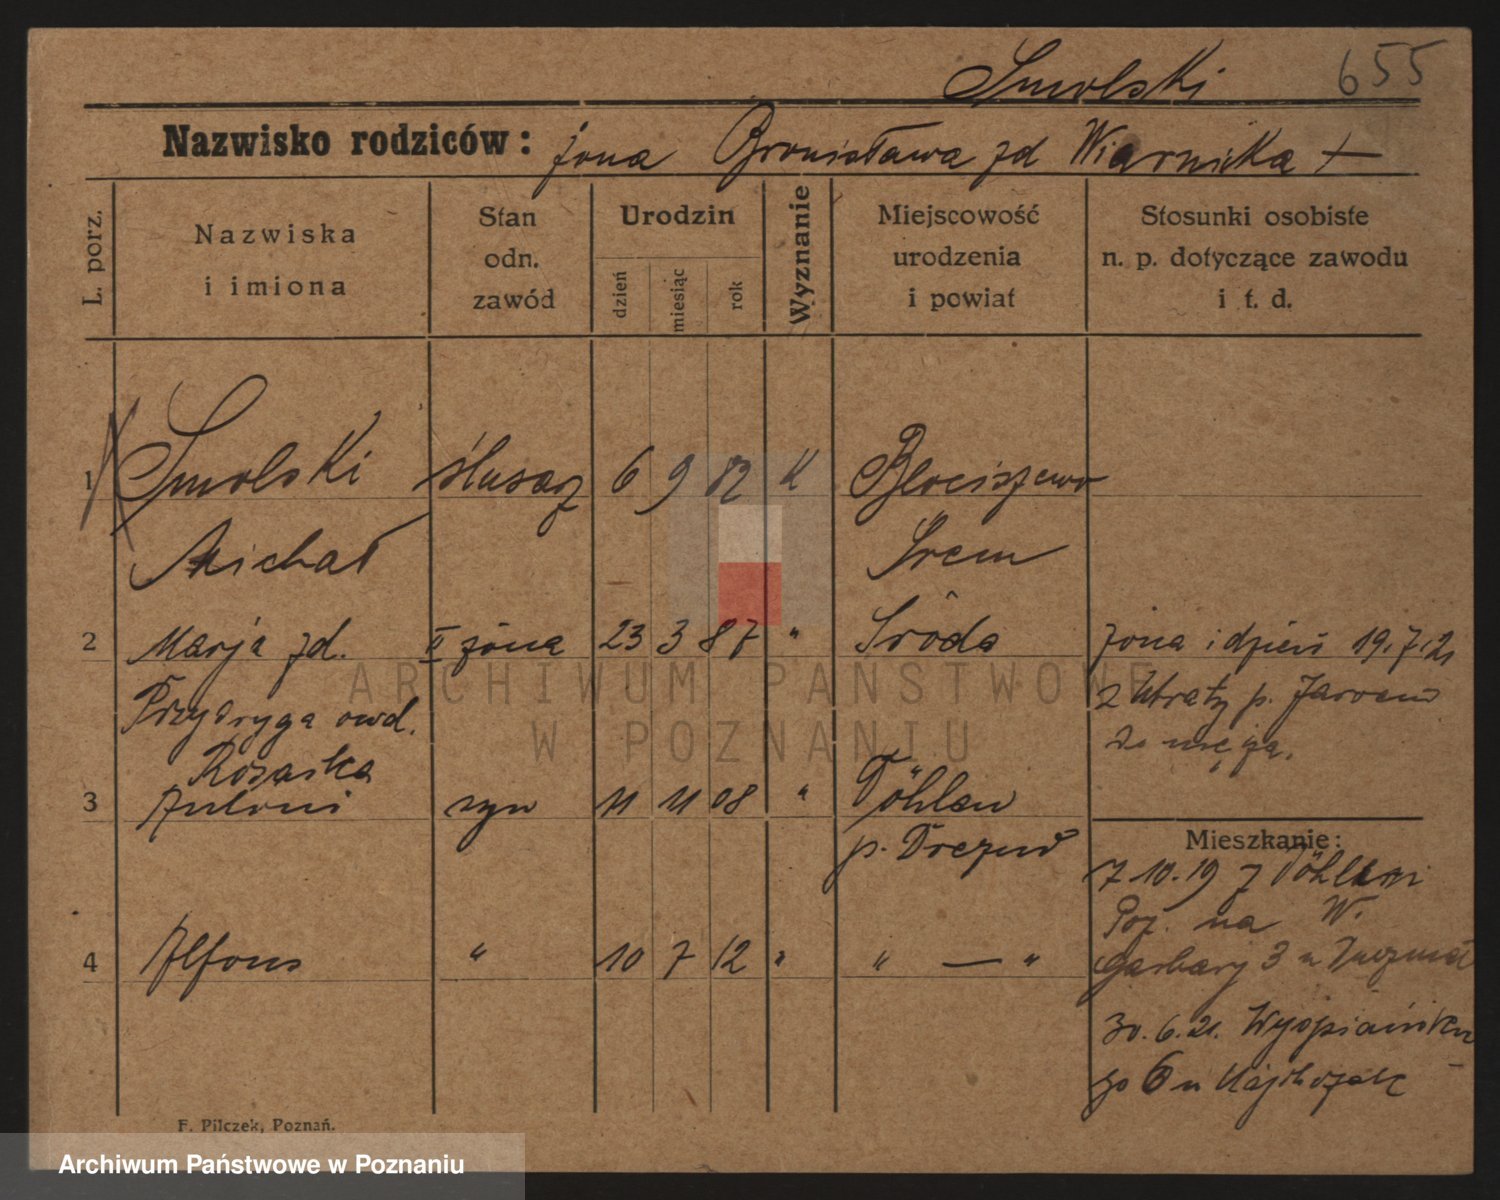 Smolski 655
Nazwisko rodziców: żona Bronisława zd Wiarnicka +
L. porz.
Nazwiska i imiona
Stan odn. zawód
Urodzin
dzień
miesiąc
rok
Wyznanie
Miejscowość urodzenia i powiat
Stosunki osobiste n. p. dotyczące zawodu i t. d.
1 Smolski ślusarz 6 9 82 K Błociszewo
Michał Śrem
2 Marja zd. II żona 23 3 87 " Środa żona i dzieci 19.7.21
Przydryga owd. z Utraty p. Jarocin
do męża.
Rozaska
3 Antoni syn 11 11 08 " Döhlen
p. Drezno
Mieszkanie:
7.10.19 z Döhlen
Poz. na W.
4 Alfons " 10 7 12 " " — " Garbary 3 u
30.6.21. Wyspiańskie
go 6 u
F. Pilczek, Poznań.
ARCHIWUM PAŃSTWOWE
W POZNANIU
Archiwum Państwowe w Poznaniu